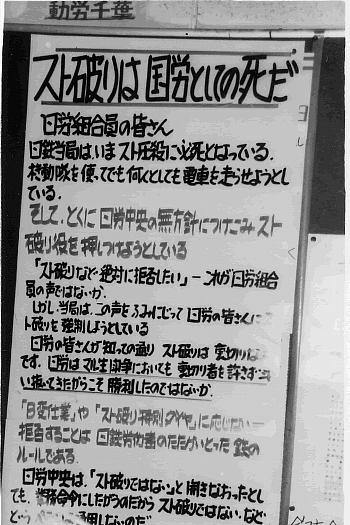 動労千葉
スト破りは国労としての死だ
国労組合員の皆さん
国鉄当局はいまスト圧殺に必死となっている。
機動隊を使ってでも何としても電車を走らせようとし
ている。
そして、とくに国労中央の無方針につけこみスト
破り役を押しつけようとしている
「スト破りなど絶対に拒否したい」－これが国労組合
員の声ではないか。
しかし、当局は、この声をふみにじって国労の皆さんに
ト破りを強制しようとしている
国労の皆さんが知っての通りスト破りは裏切り
です。国労はマル生闘争においても裏切り者を許さず
い抜いてきたからこそ勝利したのではないか。
や「スト破り特別ダイヤ」に応じない－
拒否することは国鉄労働者のたたかいとった鉄の
ルールである。
国労中央は、「スト破りではない」と開きなおったとし
ても、業務命令にしたがうのだからストスト破りではない、など